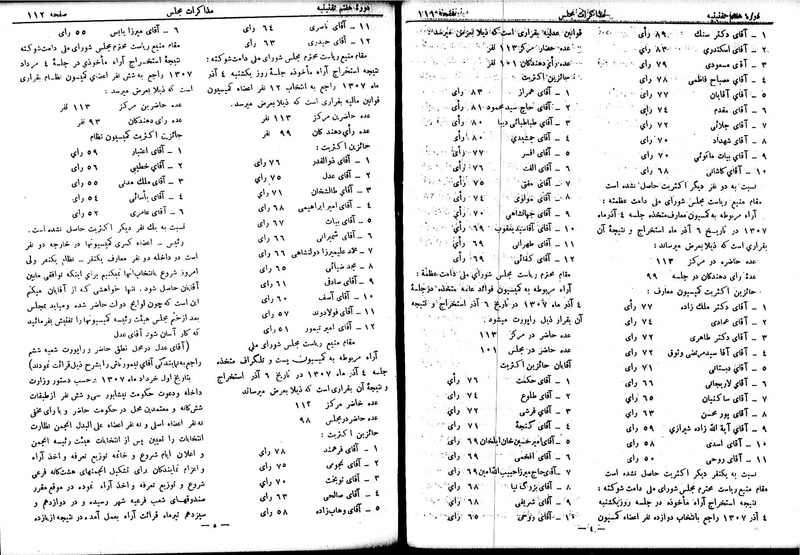 دورهٔ هفتم تقنینیه
مذاکرات مجلس
صفحه ۱۱۱
۱ - آقای دکتر سنك ۸۹ رأی
۲ - آقای اسکندری ۸۳ رأی
۳ - آقای مسعودی ۷۹ رأی
۴ - آقای مصباح فاطمی ۷۸ رأی
۵ - آقای آقایان ۷۷ رأی
۶ - آقای مقدم ۷۴ رأی
۷ - آقای جلائی ۷۲ رأی
۸ - آقای شهداد ۷۰ رأی
۹ - آقای بیات ماکوئی ۷۰ رأی
۱۰ - آقای کاشانی ۶۸ رأی
نسبت به دو نفر دیگر اکثریت حاصل نشده است
مقام منیع ریاست مجلس شورای ملی دامت عظمته :
آراء مربوطه به کمیسیون معارف متخذه جلسه ۴ آذر ماه
۱۳۰۷ در تاریخ ۶ آذر ماه استخراج و نتیجهٔ آن
بقراری است که ذیلا بعرض میرساند :
عده حاضره در مرکز ۱۱۳
عدهٔ رأی دهندگان در جلسه ۹۹
حائزین اکثریت کمیسیون معارف :
۱ - آقای دکتر ملك زاده ۷۷ رأی
۲ - آقای عمادی ۷۴ رأی
۳ - آقای دکتر طاهری ۷۲ رأی
۴ - آقای آقا سید مرتضی وثوق ۷۲ رأی
۵ - آقای دبستانی ۶۶ رأی
۶ - آقای لاریجانی ۶۶ رأی
۷ - آقای ساکنیان ۶۵ رأی
۸ - آقای پور محسن ۶۳ رأی
۹ - آقای آیة الله زاده شیرازی ۵۹ رأی
۱۰ - آقای اسدی ۵۸ رأی
۱۱ - آقای روحی ۵۰ رأی
نسبت به یکنفر دیگر اکثریت حاصل نشده است
مقام منیع ریاست محترم مجلس شورای ملی دامت شوکته :
نتیجه استخراج آراء مأخوذه در جلسه روز یکشنبه
۴ آذر ۱۳۰۷ راجع بانتخاب دوازده نفر اعضاء کمیسیون
قوانین عدلیه بقراری است که ذیلا بعرض میرسد :
عده حضار مرکز ۱۱۳ نفر
عده رأی دهندگان ۱۰۱ نفر
حائزین اکثریت
۱ - آقای همراز ۸۳ رأی
۲ - آقای حاج سید محمود ۸۱ رأی
۳ - آقای طباطبائی دیبا ۸۰ رأی
۴ - آقای جمشیدی ۸۰ رأی
۵ - آقای افسر ۷۷ رأی
۶ - آقای الفت ۷۶ رأی
۷ - آقای مفتی ۷۵ رأی
۸ - آقای مولوی ۷۴ رأی
۹ - آقای جهانشاهی ۷۰ رأی
۱۰ - آقای آقا سید یعقوب ۶۹ رأی
۱۱ - آقای طهرانی ۶۹ رأی
۱۲ - آقای کفائی ۶۹ رأی
مقام محترم ریاست مجلس شورای ملی دامت عظمته :
آراء مربوطه به کمیسیون فوائد عامه متخذه در جلسه
۴ آذر ماه ۱۳۰۷ در تاریخ ۶ آذر استخراج و نتیجه
آن بقرار ذیل راپورت میشود .
عده حاضر در مرکز ۱۱۳
عده حاضر در مجلس ۱۰۱
آقایان حائزین اکثریت
۱ - آقای حکمت ۷۶ رأی
۲ - آقای طلوع ۷۴ رأی
۳ - آقای فرشی ۷۲ رأی
۴ - آقای گنجهٔ ۷۱ رأی
۵ - آقای امیر حسین خان ایلخان ۶۹ رأی
۶ - آقای افخمی ۶۹ رأی
۷ - آقای حاج میرزا حبیب الله امین ۶۹ رأی
۸ - آقای بزرگ نیا ۶۸ رأی
۹ - آقای شریفی ۶۸ رأی
۱۰ - آقای روحی ۶۵ رأی
- ٤ -
دورهٔ هفتم تقنینیه
مذاکرات مجلس
صفحه ۱۱۲
۱۱ - آقای ناصری ۶۴ رأی
۱۲ - آقای حیدری ۶۳ رأی
مقام منیع ریاست محترم مجلس شورای ملی دامت شوکته :
نتیجه استخراج آراء مأخوذه جلسهٔ روز یکشنبه ۴ آذر
ماه ۱۳۰۷ راجع به انتخاب ۱۲ نفر اعضاء کمیسیون
قوانین مالیه بقراری است که ذیلا بعرض میرسد .
عده حاضرین مرکز ۱۱۳ نفر
عده رأی دهندگان ۹۹ نفر
حائزین اکثریت :
۱ - آقای ذوالقدر ۷۶ رأی
۲ - آقای عدل ۷۵ رأی
۳ - آقای طالشخان ۷۱ رأی
۴ - آقای امیر ابراهیمی ۶۸ رأی
۵ - آقای بیات ۶۷ رأی
۶ - آقای شمیرانی ۶۶ رأی
۷ - محمد علیمیرزا دولتشاهی ۶۶ رأی
۸ - مجد ضیائی ۶۵ رأی
۹ - آقای صادق ۶۱ رأی
۱۰ - آقای آصف ۶۰ رأی
۱۱ - آقای فولادوند ۵۷ رأی
۱۲ - آقای امیر تیمور ۵۱ رأی
مقام منیع ریاست مجلس شورای ملی
آراء مربوطه به کمیسیون پست و تلگراف متخذه
جلسه ۴ آذر ماه ۱۳۰۷ در تاریخ ۶ آذر استخراج
و نتیجهٔ آن بقراری است که ذیلا بعرض میرساند
عده حاضر مرکز ۱۱۳
عده حاضر در مجلس ۹۸
حائزین اکثریت :
۱ - آقای فرهمند ۷۸ رأی
۲ - آقای نجومی ۷۵ رأی
۳ - آقای نوبخت ۷۰ رأی
۴ - آقای صالحی ۶۳ رأی
۵ - آقای وهاب زاده ۵۸ رأی
۶ - آقای میرزا یانس ۵۵ رأی
مقام منیع ریاست محترم مجلس شورای ملی دامت شوکته
نتیجهٔ استخراج آراء مأخوذی در جلسهٔ ٤ مرداد
۱۳۰۷ راجع به شش نفر اعضای کمیسیون نظام بقراری
است که ذیلا بعرض میرساند :
عده حاضرین مرکز ۱۱۳ نفر
عده رأی دهندگان ۹۳ نفر
حائزین اکثریت کمیسیون نظام
۱ - آقای اعتبار ۵۹ رأی
۲ - آقای خطیبی ۵۶ رأی
۳ - آقای ملك مدنی ۵۵ رأی
۴ - آقای یاسائی ۵۴ رأی
۵ - آقای عامری ۵۲ رأی
نسبت به یك نفر دیگر اکثریت حاصل نشده است .
رئیس - اعضاء کسری کمیسیونها در خارجه دو نفر
است در داخله دو نفر معارف یکنفر - نظام یکنفر ولی
امروز شروع بانتخاب آنها نمیکنیم برای اینکه توافقی مابین
آقایان حاصل شود . تنها خواهشی که از آقایان میکنم
این است که چون لوایح دولت حاضر شده و میآید بمجلس
بعد از ختم مجلس هیئت رئیسه کمیسیونها را تفتیش بفرمائید
که کار آسان شود آقای عدل
(آقای عدل در محل نطق حاضر و راپورت شعبه ششم
راجع به نمایندگی آقای تیمورتاش را بشرح ذیل قرائت نمودند)
بتاریخ اول خرداد ماه ۱۳۰۷ برحسب دستور وزارت
داخله و دعوت حکومت نیشابور سی و شش نفر از طبقات
ششگانه و معتمدین محل در حکومت حاضر و با رأی مخفی
نه نفر اعضاء اصلی و نه نفر اعضاء علی البدل انجمن نظارت
انتخابات را تعیین پس از انتخابات هیئت رئیسه انجمن
و اعلان ایام شروع و خاتمه توزیع تعرفه و اخذ آراء
و اعزام نمایندگان برای تشکیل انجمنهای هشتگانه فرعی
شروع و توزیع تعرفه و اخذ آراء نموده در موقع مقرر
صندوقهای شعب فرعیه شهر رسیده و در دوازدهم و
سیزدهم تیرماه قرائت آراء بعمل آمده در نتیجه از یازده
- ٥ -